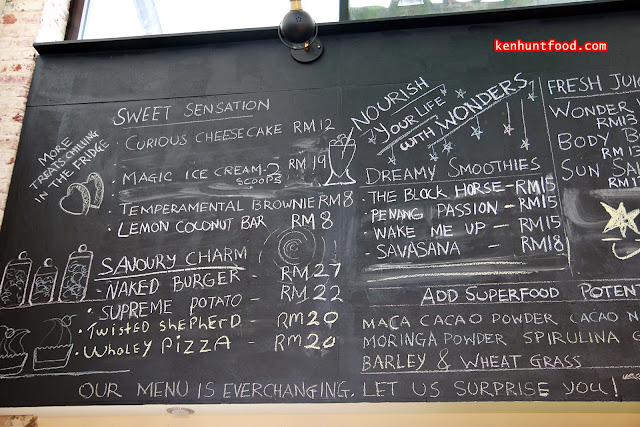 kenhuntfood.com
SWEET SENSATION
CURIOUS CHEESECAKE RM 12
MAGIC ICE CREAM-2 SCOOPS RM 19
TEMPERAMENTAL BROWNIE RM8
LEMON COCONUT BAR RM 8
MORE
TREATS CHILLING
IN THE FRIDGE
SAVOURY CHARM
NAKED BURGER - RM27
SUPREME POTATO - RM 22
TWISTED SHEPHERD RM20
WHOLEY PIZZA - RM20
NOURISH
YOUR LIFE
WITH WONDERS
DREAMY SMOOTHIES
THE BLOCK HORSE - RM15
PENANG PASSION - RM15
WAKE ME UP - RM15
SAVASANA - RM18
FRESH JUIC
WONDER
RM13
BODY B
RM13
SUN SA
ADD SUPERFOOD POTENT
MACA CACAO POWDER CACAO N
MORINGA POWDER SPIRULINA G
BARLEY & WHEAT GRASS
OUR MENU IS EVERCHANGING. LET US SURPRISE YOU!